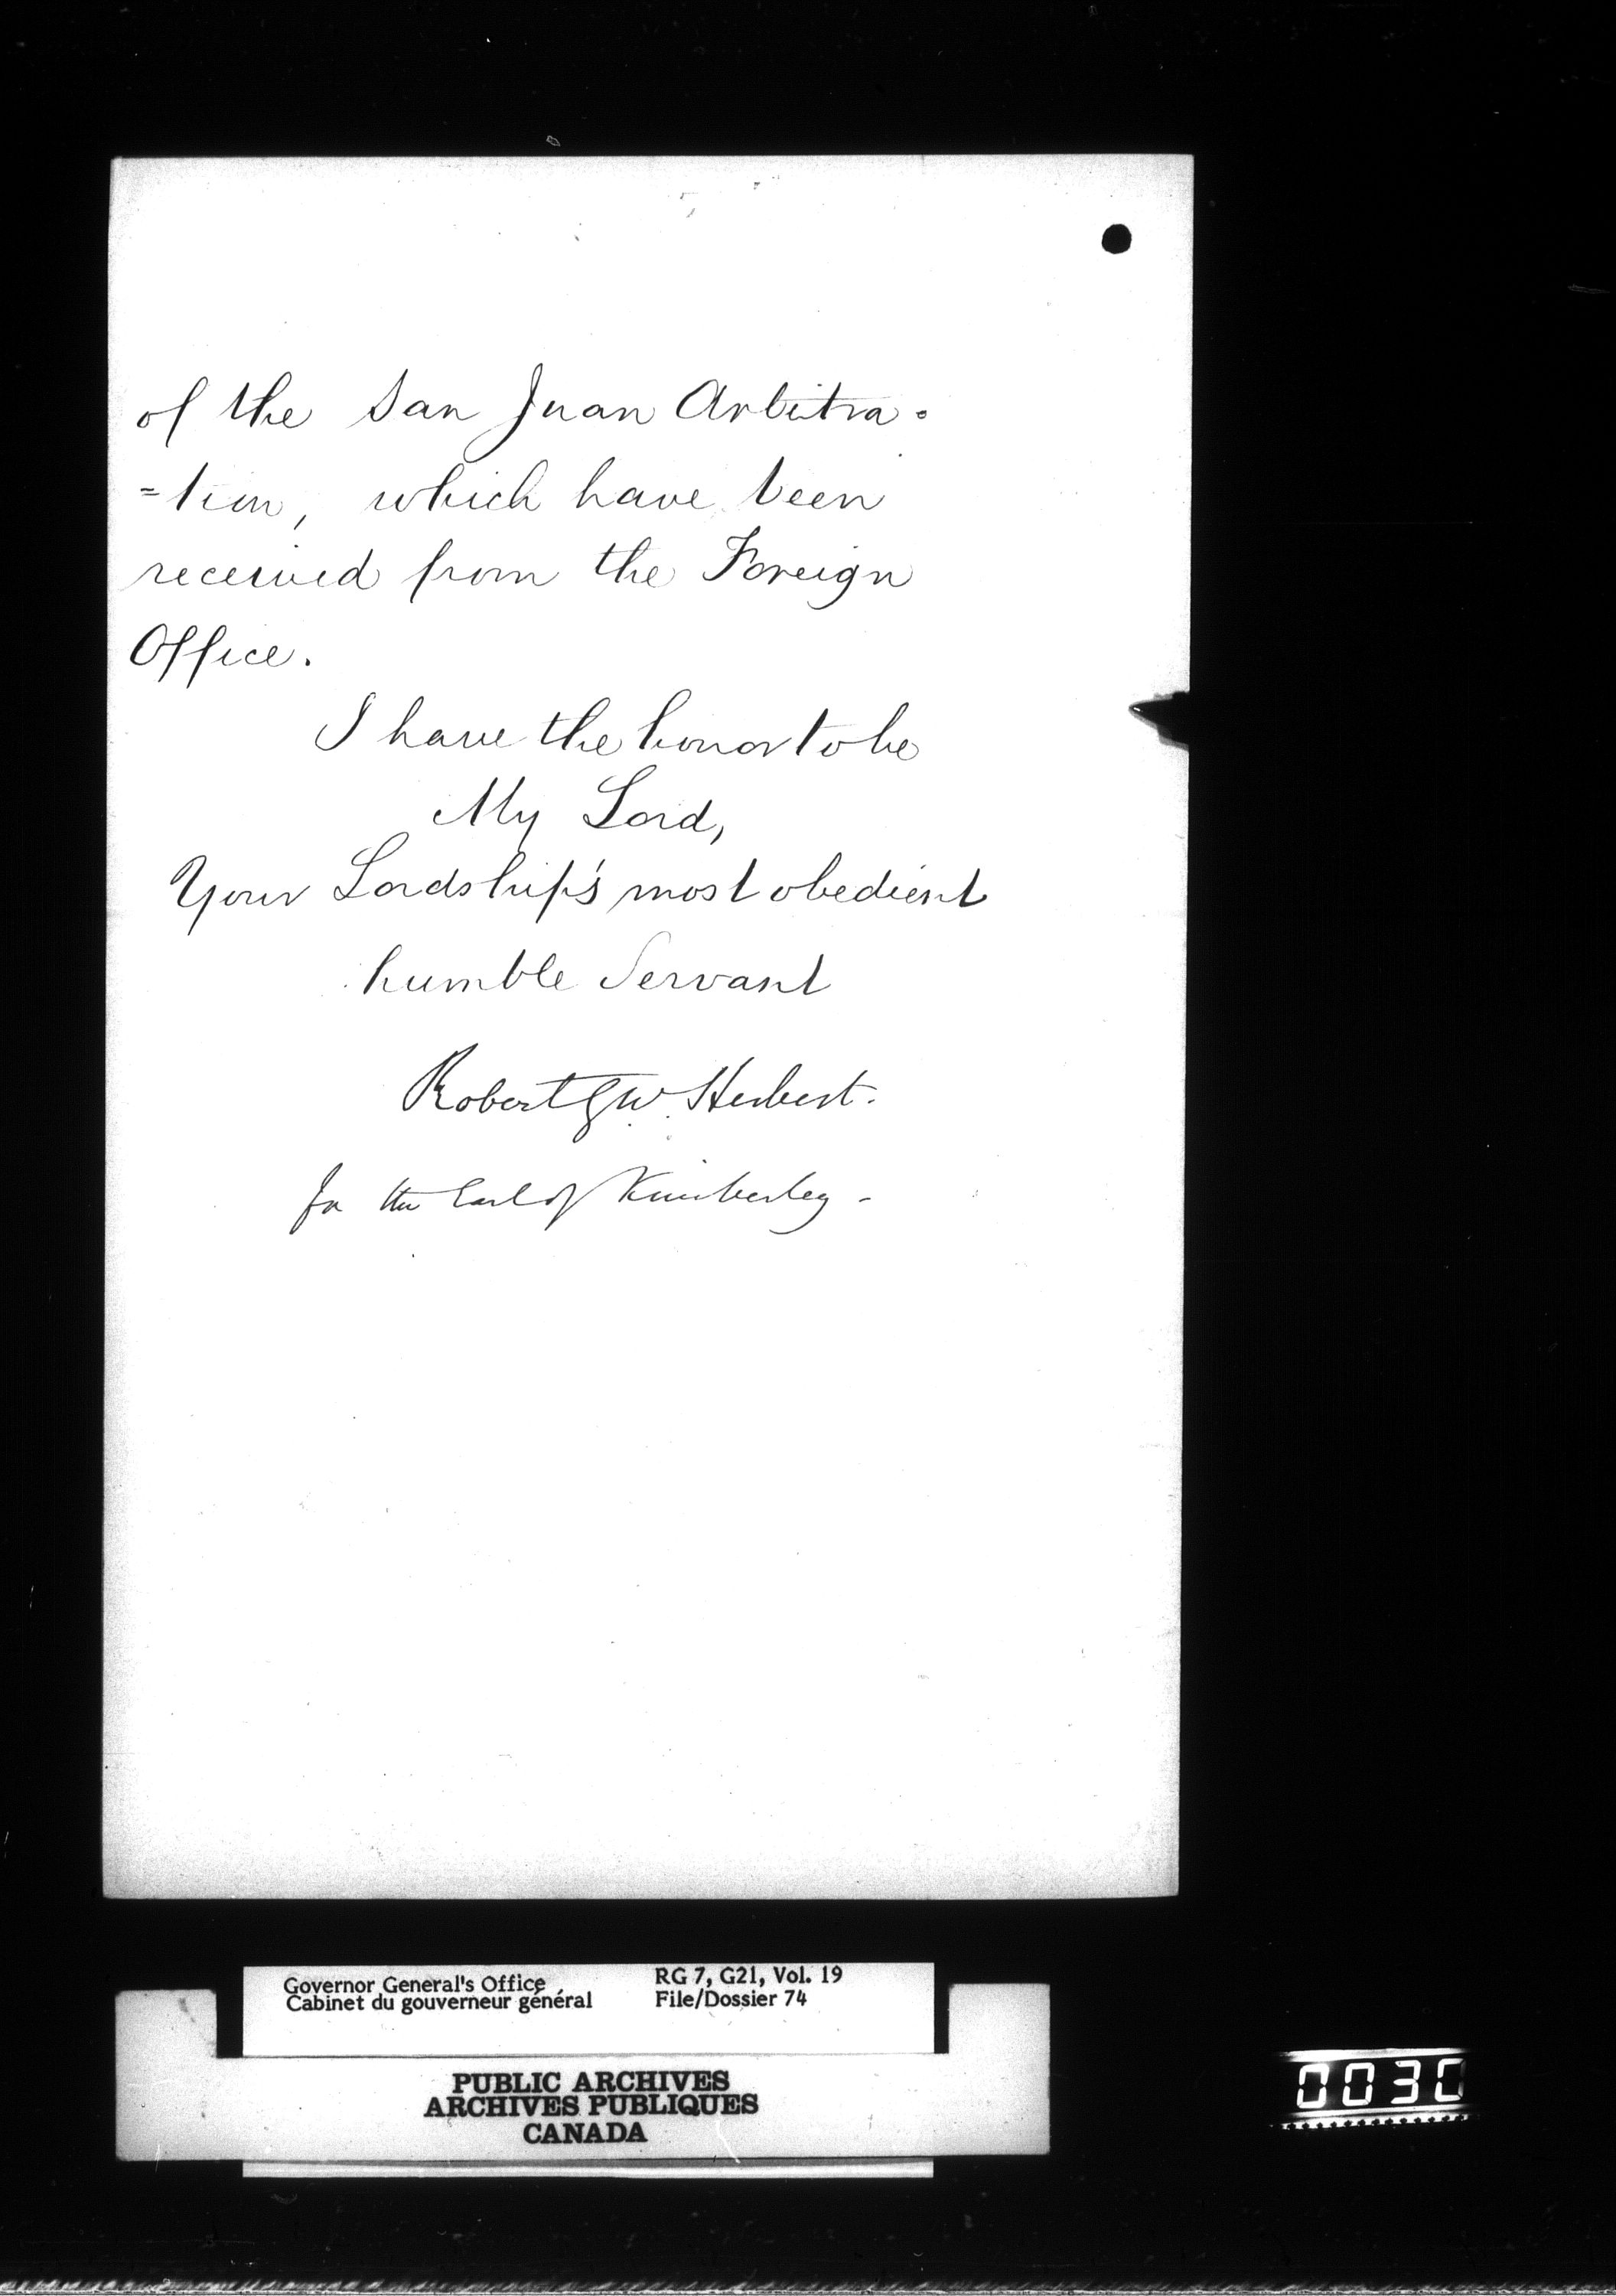 of the San Juan Arbitra=
=tion, which have been
received from the Foreign
Office.
I have the honor to be
My Lord,
Your Lordship's most obedient
humble Servant
Robert G W Herbert.
for the Earl of Kimberley -
Governor General's Office
Cabinet du gouverneur général
RG 7, G21, Vol. 19
File/Dossier 74
PUBLIC ARCHIVES
ARCHIVES PUBLIQUES
CANADA
0030